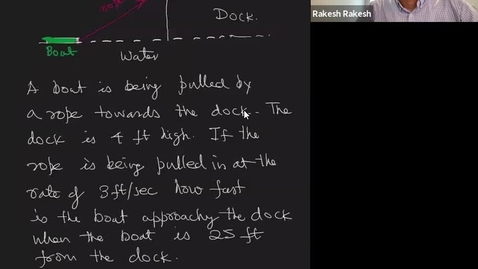 rope
Dock.
Rakesh Rakesh
Boat
Water
A boat is being pulled by
a rope towards the dock. The
dock is 4 ft high. If the
rope is being pulled in at the
rate of 3 ft/sec how fast
is the boat approachy the dock
when the boat is 25 ft
from the dock.